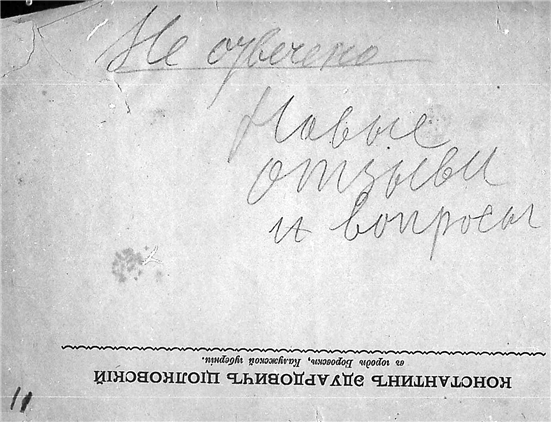 Не отвечено
Новые
отзывы
и вопросы
КОНСТАНТИНЪ ЭДУАРДОВИЧЪ ЦІОЛКОВСКІЙ
въ городѣ Боровскѣ, Калужской губерніи.
11